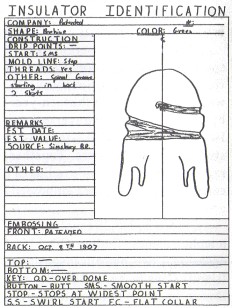 INSULATOR IDENTIFICATION
COMPANY: Patented #:
SHAPE: Beehive COLOR: Green
CONSTRUCTION
DRIP POINTS: —
START: SMS
MOLD LINE: Stop
THREADS: Yes
OTHER: Spiral Groove
starting in back
2 Skirts
REMARKS
EST. DATE:
EST. VALUE:
SOURCE:
OTHER:
EMBOSSING
FRONT: PATENTED
BACK: OCT. 8TH 1907
TOP: —
BOTTOM: —
KEY: O.D.-OVER DOME
BUTTON-BUTT SMS.-SMOOTH START
STOP-STOPS AT WIDEST POINT
S.S-SWIRL START F.C-FLAT COLLAR